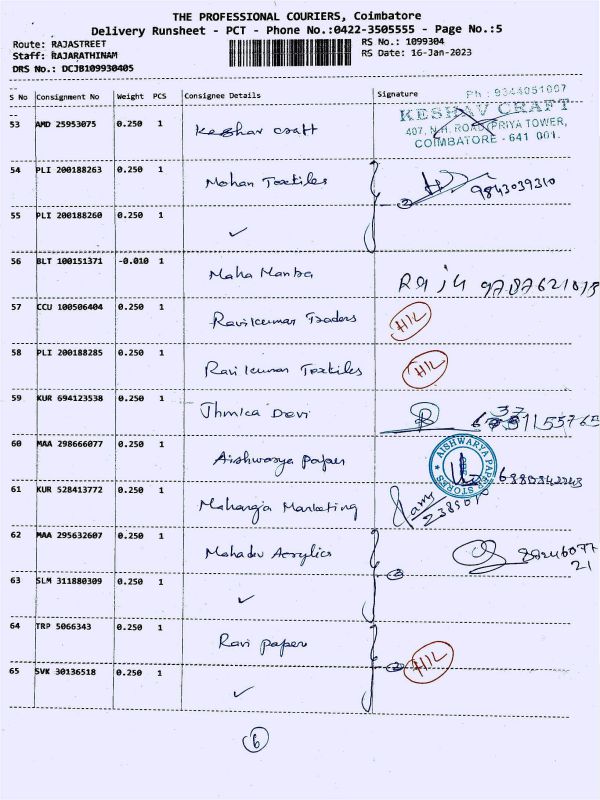 THE PROFESSIONAL COURIERS, Coimbatore
Delivery Runsheet - PCT - Phone No.:0422-3505555 - Page No.:5
Route: RAJASTREET
RS No.: 1099304
Staff: RAJARATHINAM
RS Date: 16-Jan-2023
DRS No.: DCJB109930405
S No Consignment No Weight PCS Consignee Details Signature
Ph : 9344051007
KESHAV CRAFT
407, N.H. ROAD, PRIYA TOWER,
COIMBATORE - 641 001.
53 AMD 25953075 0.250 1 Keshav craft
54 PLI 200188263 0.250 1 Mohan Textiles 2 9843039310
55 PLI 200188260 0.250 1 ✓
56 BLT 100151371 -0.010 1 Maha Mantra Raju
57 CCU 100506404 0.250 1 Ravikumar Traders HIL
58 PLI 200188285 0.250 1 Ravi kumar Textiles HIL
59 KUR 694123538 0.250 1 Devi
60 MAA 298666077 0.250 1 Aishwarya paper AISHWARYA PAPER STORES
61 KUR 528413772 0.250 1 Marketing
62 MAA 295632607 0.250 1 Mahadev Acrylics 2
63 SLM 311880309 0.250 1 ✓
64 TRP 5066343 0.250 1 Ravi paper 2 HIL
65 SVK 30136518 0.250 1 ✓
6